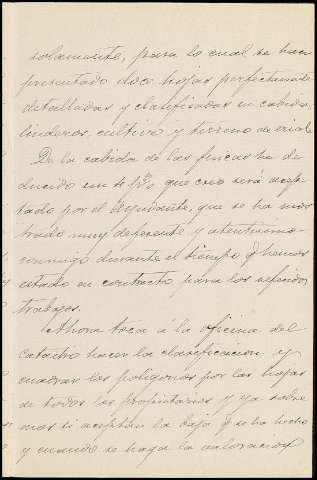 solamente, para lo cual se han
presentado dos hojas perfectamente
detalladas y clasificadas en cabida,
linderos, cultivo y terreno de erial.
De la cabida de las fincas he de
ducido un 4 p% que creo será acep-
tado por el Ayudante, que se ha mos
trado muy deferente y atentísimo
conmigo durante el tiempo q hemos
estado en contacto para los referidos
trabajos.
Ahora toca á la oficina del
Catastro hacer la clasificacion y
cuadrar los poligonos por las hojas
de todos los propietarios y ya sabre
mos si aceptan la baja q se ha hecho
y cuando se haga la valoracion